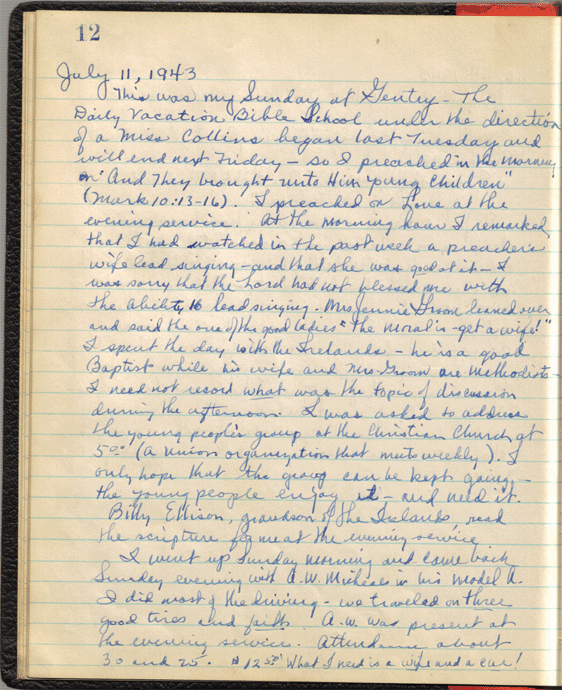 12
July 11, 1943
This was my Sunday at Gentry - The
Daily Vacation Bible School under the direction
of a Miss Collins began last Tuesday and
will end next Friday - so I preached in the morning
on "And They brought unto Him young children"
(Mark 10:13-16). I preached on Love at the
evening service. At the morning hour I remarked
that I had watched in the past week a preacher's
wife lead singing - and that she was good at it - I
was sorry that the Lord had not blessed me with
the ability to lead singing. Mrs Jennie Groom leaned over
and said the one of the good ladies "The moral is - get a wife!"
I spent the day with the Irelands - he is a good
Baptist while his wife and Mrs Groom are Methodists -
I need not record what was the topic of discussion
during the afternoon. I was asked to address
the young people's group at the Christian Church at
5:00 (a union organization that meets weekly). I
only hope that the group can be kept going, -
the young people enjoy it - and need it.
Billy Ellison, grandson of the Irelands, read
the scripture for me at the evening service.
I went up Sunday morning and came back
Sunday evening with A.W. in his Model A.
I did most of the driving - we traveled on three
good tires and faith. A.W. was present at
the evening service. Attendance about
30 and 25. $12.50! What I need is a wife and a car!